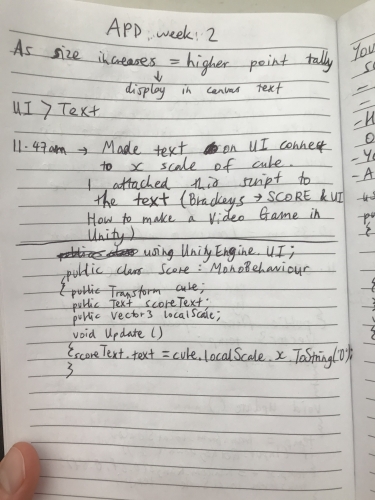 APD week: 2
As size increases = higher point tally
↓
display in canvas text
UI > Text
11.47am → Made text on UI connect
to x scale of cube.
I attached this script to
the text (Brackeys → SCORE & UI
How to make a Video Game in
Unity)
using UnityEngine.UI;
public class Score : MonoBehaviour
{ public Transform cube;
public Text scoreText;
public Vector3 localScale;
void Update ()
{scoreText.text = cube.localScale.x.ToString("0");
}
You
-
-
-
-
{
{
}